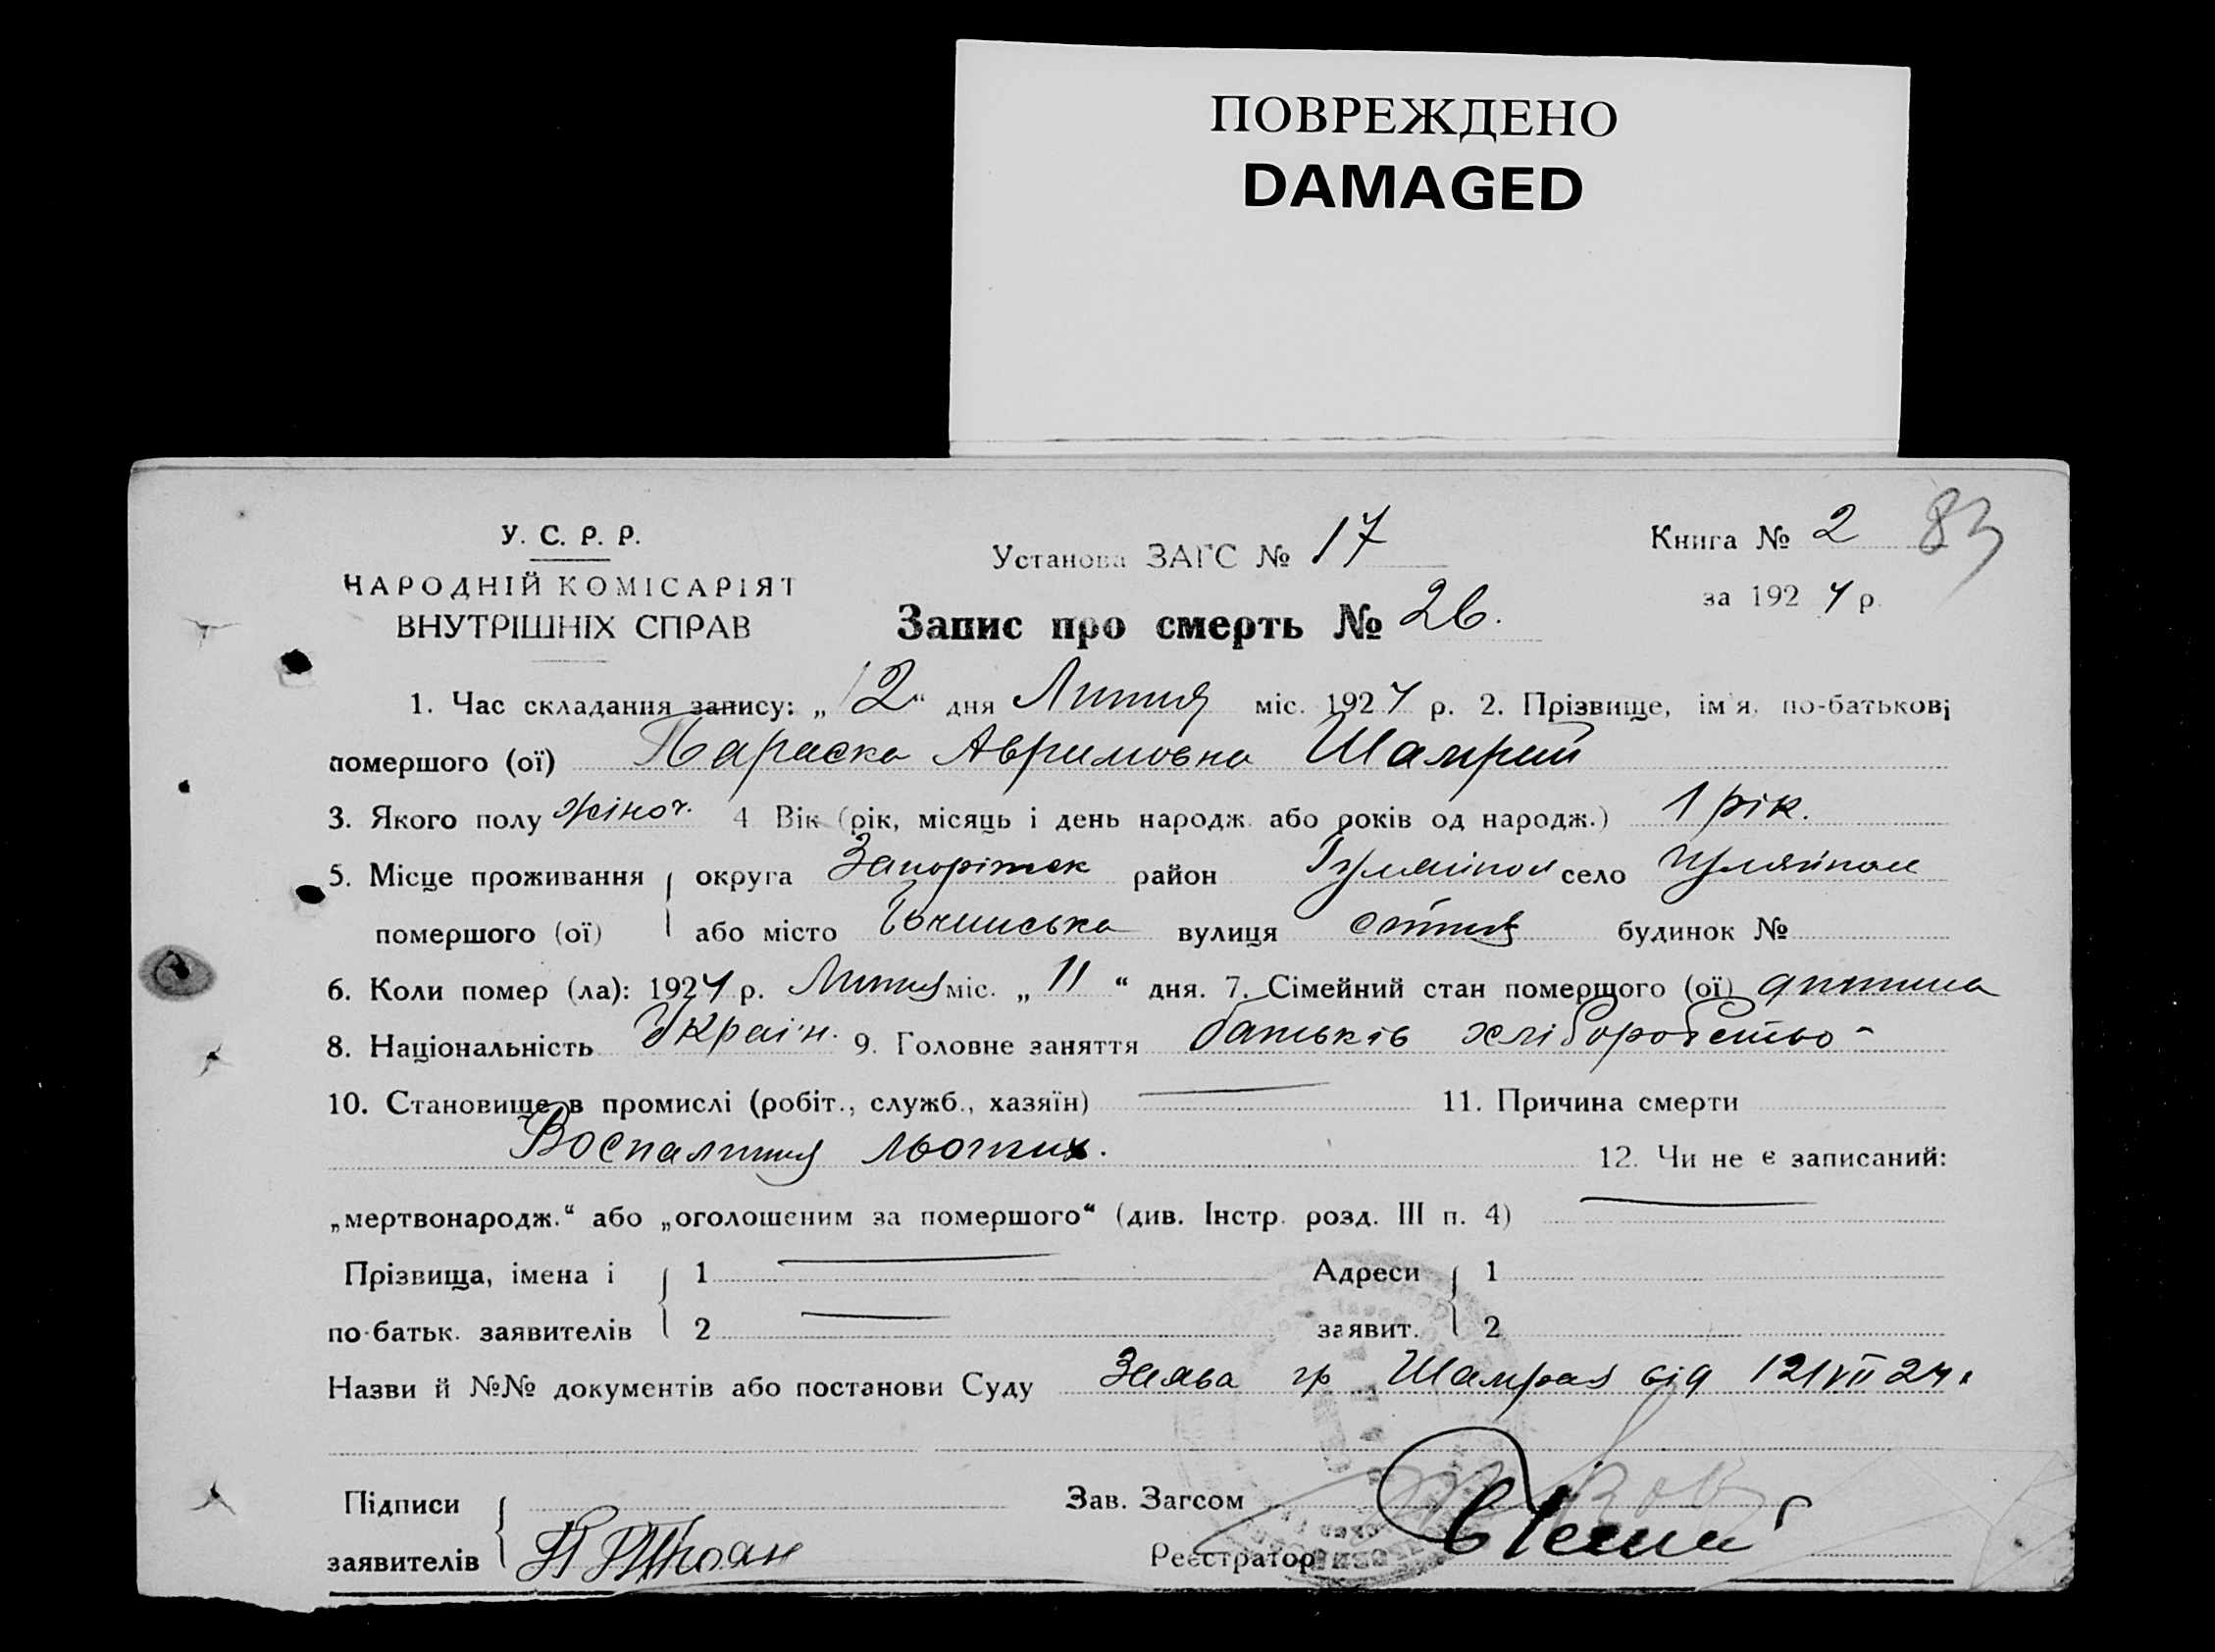 ПОВРЕЖДЕНО
DAMAGED
У. С. Р. Р.
НАРОДНІЙ КОМІСАРІЯТ
ВНУТРІШНІХ СПРАВ
Установа ЗАГС № 17
Книга № 2 83
за 1924 р.
Запис про смерть № 26.
1. Час складання запису: „12“ дня Липня міс. 1924 р. 2. Прізвище, ім'я, по-батькові
помершого (ої) Параска Аврамовна Шамрай
3. Якого полу жіноч. 4 Вік (рік, місяць і день народж. або років од народж.) 1 рік.
5. Місце проживання округа Запоріжек район Гуляйпол село Гуляйполе
помершого (ої) або місто вулиця сотня будинок №
6. Коли помер (ла): 1924 р. Липня міс. „11“ дня. 7. Сімейний стан померщого (ої) дитина
8. Національність Україн. 9. Головне заняття батьків хліборобство
10. Становище в промислі (робіт., служб., хазяїн) 11. Причина смерти
Воспалиния льогких.
12. Чи не є записаний:
„мертвонародж.“ або „оголошеним за помершого“ (див. Інстр. розд. III п. 4)
Прізвища, імена і 1 Адреси 1
по-батьк. заявителів 2 заявит. 2
Назви й №№ документів або постанови Суду Заява гр Шамрая від 12/VII 24
Підписи Зав. Загсом
заявителів Реєстратор